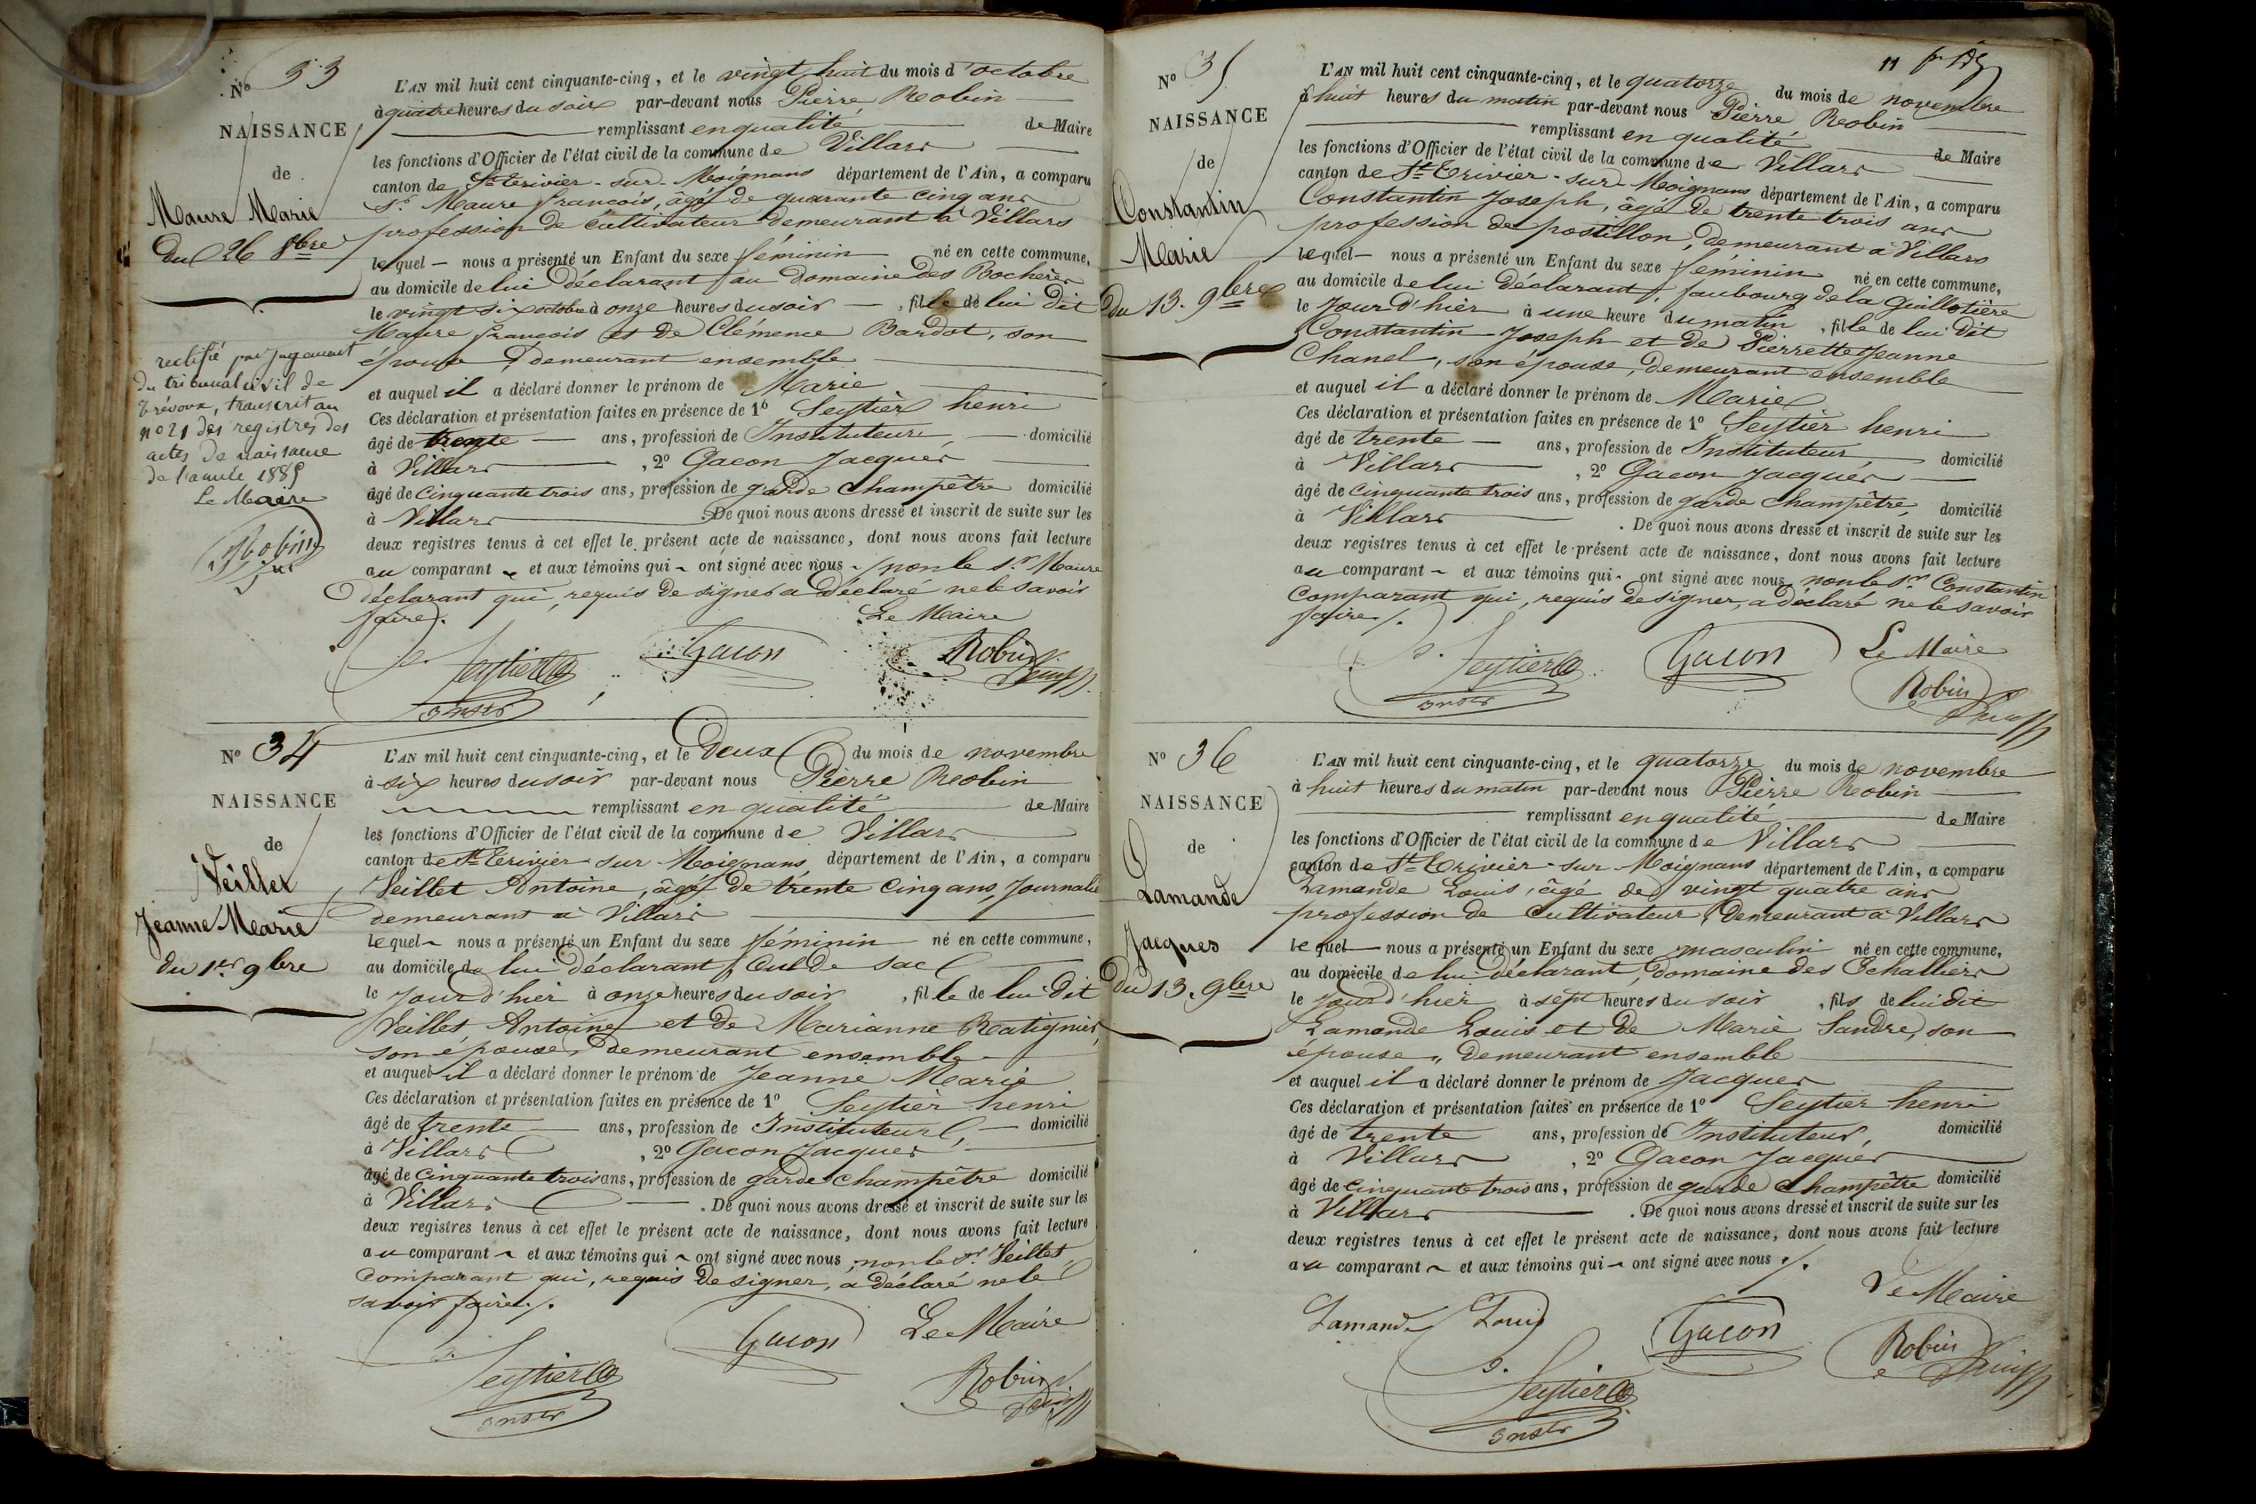 Nº 33
NAISSANCE
de
Maure Marie
du 26 8bre
rectifié par jugement
du tribunal civil de
Trévoux, transcrit au
nº 21 des registres des
actes de naissance
de l'année 1885
Le Maire
Robin
L'AN mil huit cent cinquante-cinq, et le vingt huit du mois d'octobre
à quatre heures du soir par-devant nous Pierre Robin
remplissant en qualité de Maire
les fonctions d'Officier de l'état civil de la commune de Villars
canton de St Trivier-sur-Moignans département de l'Ain, a comparu
Sr Maure François, âgé de quarante cinq ans
profession de cultivateur demeurant à Villars
lequel nous a présenté un Enfant du sexe féminin né en cette commune,
au domicile de lui déclarant au domaine des Rochers
le vingt six octobre à onze heures du soir, fille de lui dit
Maure François et de Clémence Bardot, son
épouse demeurant ensemble
et auquel il a déclaré donner le prénom de Marie
Ces déclaration et présentation faites en présence de 1º Seytier henri
âgé de trente ans, profession de Instituteur, domicilié
à Villars, 2º Gacon Jacques
âgé de cinquante trois ans, profession de garde champêtre domicilié
à Villars. De quoi nous avons dressé et inscrit de suite sur les
deux registres tenus à cet effet le présent acte de naissance, dont nous avons fait lecture
au comparant et aux témoins qui ont signé avec nous non le Sr Maure
déclarant qui, requis de signer a déclaré ne le savoir
faire.
Le Maire
Seytier Gacon Robin
instr
Nº 34
NAISSANCE
de
Veillet
Jeanne Marie
du 1er 9bre
L'AN mil huit cent cinquante-cinq, et le Deux du mois de novembre
à six heures du soir par-devant nous Pierre Robin
remplissant en qualité de Maire
les fonctions d'Officier de l'état civil de la commune de Villars
canton de St Trivier-sur-Moignans département de l'Ain, a comparu
Veillet Antoine, âgé de trente cinq ans, Journalier
demeurant à Villars
lequel nous a présenté un Enfant du sexe féminin né en cette commune,
au domicile de lui déclarant, Cul de sac
le jour d'hier à onze heures du soir, fille de lui dit
Veillet Antoine et de Marianne Ratignier,
son épouse, demeurant ensemble
et auquel il a déclaré donner le prénom de Jeanne Marie
Ces déclaration et présentation faites en présence de 1º Seytier henri
âgé de trente ans, profession de Instituteur, domicilié
à Villars, 2º Gacon Jacques
âgé de cinquante trois ans, profession de garde champêtre domicilié
à Villars. De quoi nous avons dressé et inscrit de suite sur les
deux registres tenus à cet effet le présent acte de naissance, dont nous avons fait lecture
au comparant et aux témoins qui ont signé avec nous, non le Sr Veillet
comparant qui, requis de signer, a déclaré ne le
savoir faire./.
Gacon Le Maire
Seytier Robin
instr
11
Nº 35
NAISSANCE
de
Constantin
Marie
du 13. 9bre
L'AN mil huit cent cinquante-cinq, et le quatorze du mois de novembre
à huit heures du matin par-devant nous Pierre Robin
remplissant en qualité de Maire
les fonctions d'Officier de l'état civil de la commune de Villars
canton de St Trivier-sur-Moignans département de l'Ain, a comparu
Constantin Joseph, âgé de trente trois ans
profession de postillon, demeurant à Villars
lequel nous a présenté un Enfant du sexe féminin né en cette commune,
au domicile de lui déclarant, faubourg de la Guillotière
le jour d'hier à une heure du matin, fille de lui dit
Constantin Joseph et de Pierrette Jeanne
Chanel, son épouse, demeurant ensemble
et auquel il a déclaré donner le prénom de Marie
Ces déclaration et présentation faites en présence de 1º Seytier henri
âgé de trente ans, profession de Instituteur, domicilié
à Villars, 2º Gacon Jacques
âgé de cinquante trois ans, profession de garde champêtre, domicilié
à Villars. De quoi nous avons dressé et inscrit de suite sur les
deux registres tenus à cet effet le présent acte de naissance, dont nous avons fait lecture
au comparant et aux témoins qui ont signé avec nous non le Sr Constantin
comparant qui, requis de signer, a déclaré ne le savoir
faire./.
Seytier Gacon Le Maire
instr Robin
Nº 36
NAISSANCE
de
Lamande
Jacques
du 13. 9bre
L'AN mil huit cent cinquante-cinq, et le quatorze du mois de novembre
à huit heures du matin par-devant nous Pierre Robin
remplissant en qualité de Maire
les fonctions d'Officier de l'état civil de la commune de Villars
canton de St Trivier-sur-Moignans département de l'Ain, a comparu
Lamande Louis, âgé de vingt quatre ans
profession de cultivateur, demeurant à Villars
lequel nous a présenté un Enfant du sexe masculin né en cette commune,
au domicile de lui déclarant, domaine des Echalliers
le jour d'hier à sept heures du soir, fils de lui dit
Lamande Louis et de Marie Sandre, son
épouse, demeurant ensemble
et auquel il a déclaré donner le prénom de Jacques
Ces déclaration et présentation faites en présence de 1º Seytier henri
âgé de trente ans, profession de Instituteur, domicilié
à Villars, 2º Gacon Jacques
âgé de cinquante trois ans, profession de garde champêtre domicilié
à Villars. De quoi nous avons dressé et inscrit de suite sur les
deux registres tenus à cet effet le présent acte de naissance, dont nous avons fait lecture
au comparant et aux témoins qui ont signé avec nous ./.
Le Maire
Lamande Louis Gacon Robin
Seytier
instr